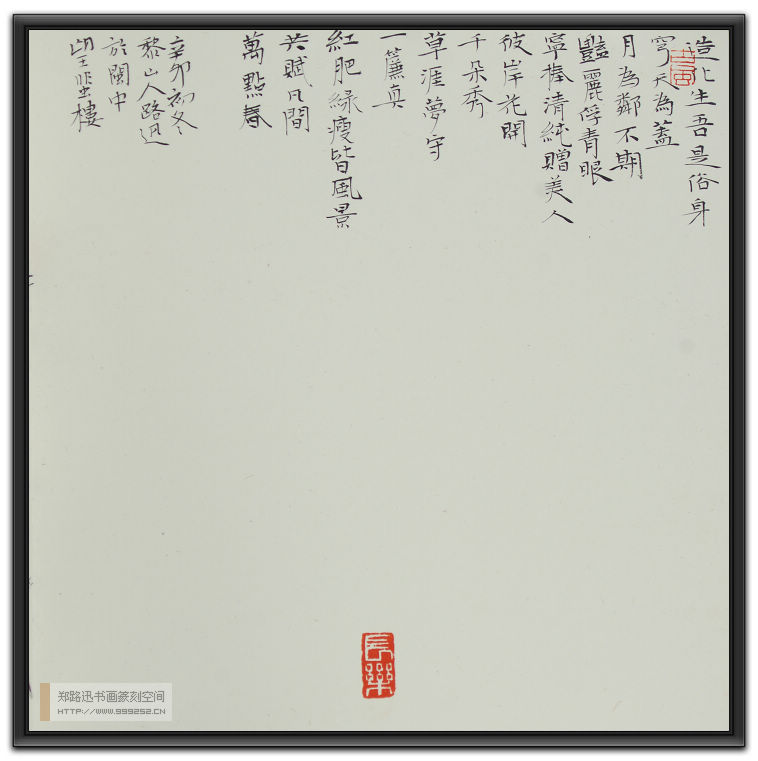 造化生吾是俗身
穹天為蓋
月為鄰不期
豔麗俘青眼
寧捧清純贈美人
彼岸花開
千朵秀
草涯夢守
一簾真
紅肥綠瘦皆風景
共賦凡間
萬點春
辛卯初冬
黎山人路迅
於閩中
望悲樓
長樂
郑路迅书画篆刻空间
HTTP://WWW.999252.CN